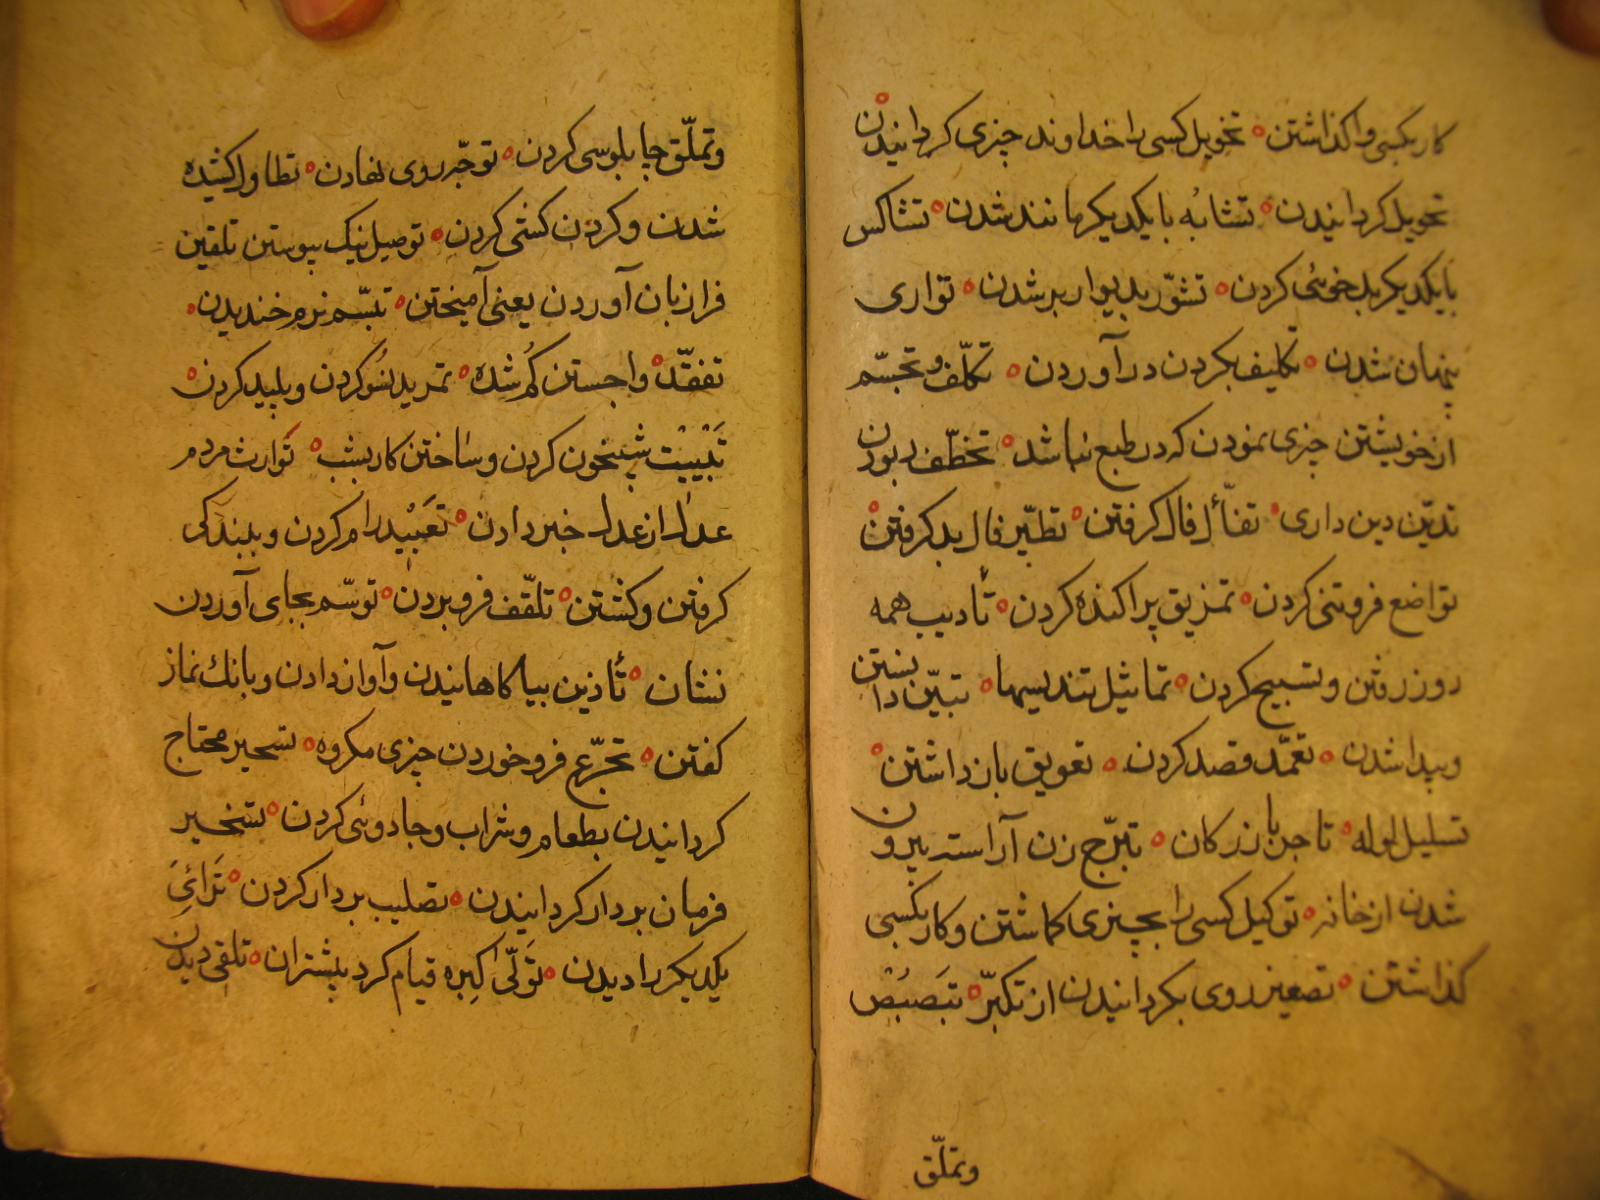 کار بکسی واکذاشتن تخویل کسی را خداوند چیزی کردانیدن
تحویل کردانیدن تشابُه با یکدیکر مانند شدن تشاکس
با یکدیکر بدخوئی کردن تسَوّر بدیوار بر شدن تواری
پنهان شدن تکلیف بکردن درآوردن تکلّف و تجسّم
از خویشتن چیزی نمودن که در طبع نباشد تخطّف ربودن
تدیّن دین داری تفأّل فال کرفتن تطیّر فال بد کرفتن
تواضع فروتنی کردن تمزیق پراکنده کردن تأدیب همه
روز رفتن و تسبیح کردن تماثیل تندیسها تبیّن دانستن
و پیدا شدن تعمّد قصد کردن تعویق بازداشتن
تسلیل لوله تاجر بازرکان تبرّج زن آراسته بیرون
شدن از خانه توکیل کسی را بچیزی کماشتن و کار بکسی
کذاشتن تصعیر روی بکردانیدن از تکبّر تبَصبُص
وتملّق
وتملّق چابلوسی کردن توجّه روی نهادن تطاول کشیده
شدن و کردن کشی کردن توصیل نیک پیوستن تلقین
فرا زبان آوردن یعنی آمیختن تبسّم نرم خندیدن
تفقّد واجستن کُم شده تمرید نسُو کردن و پلید کردن
تَبْیِیْت شبیخون کردن و ساختن کار بشب تَوارث مردم
عدل از عدل خبر دادن تَعَبْیْد رام کردن و ببندکی
کرفتن و کشتن تلقّف فرو بردن توسّم بجای آوردن
نشان تأذین بیاکاهانیدن و آواز دادن و بانك نماز
کفتن تجرّع فرو خوردن چیزی مکروه تسحیر محتاج
کردانیدن بطعام و شراب و جادوئی کردن تسخیر
فرمان بردار کردانیدن تصلیب بر دار کردن تَرائِیَ
یکدیکر را دیدن تَوَلّی کِبره قیام کرد پیشتران تلقی دیدن